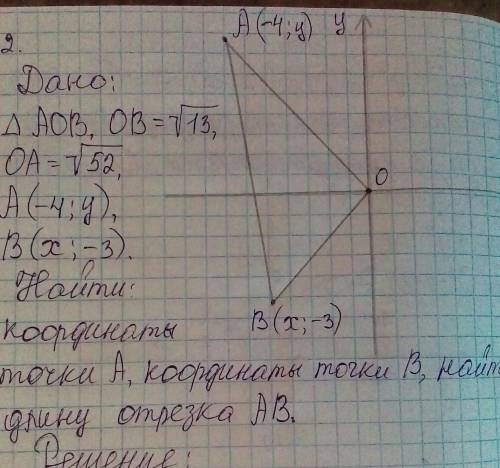 2.
A(-4; y) y
Дано:
△ AOB, OB = √13,
OA = √52,
A(-4; y),
O
B(x; -3).
Найти:
координаты
B(x; -3)
точки A, координаты точки B, найт
длину отрезка AB.
Решение: